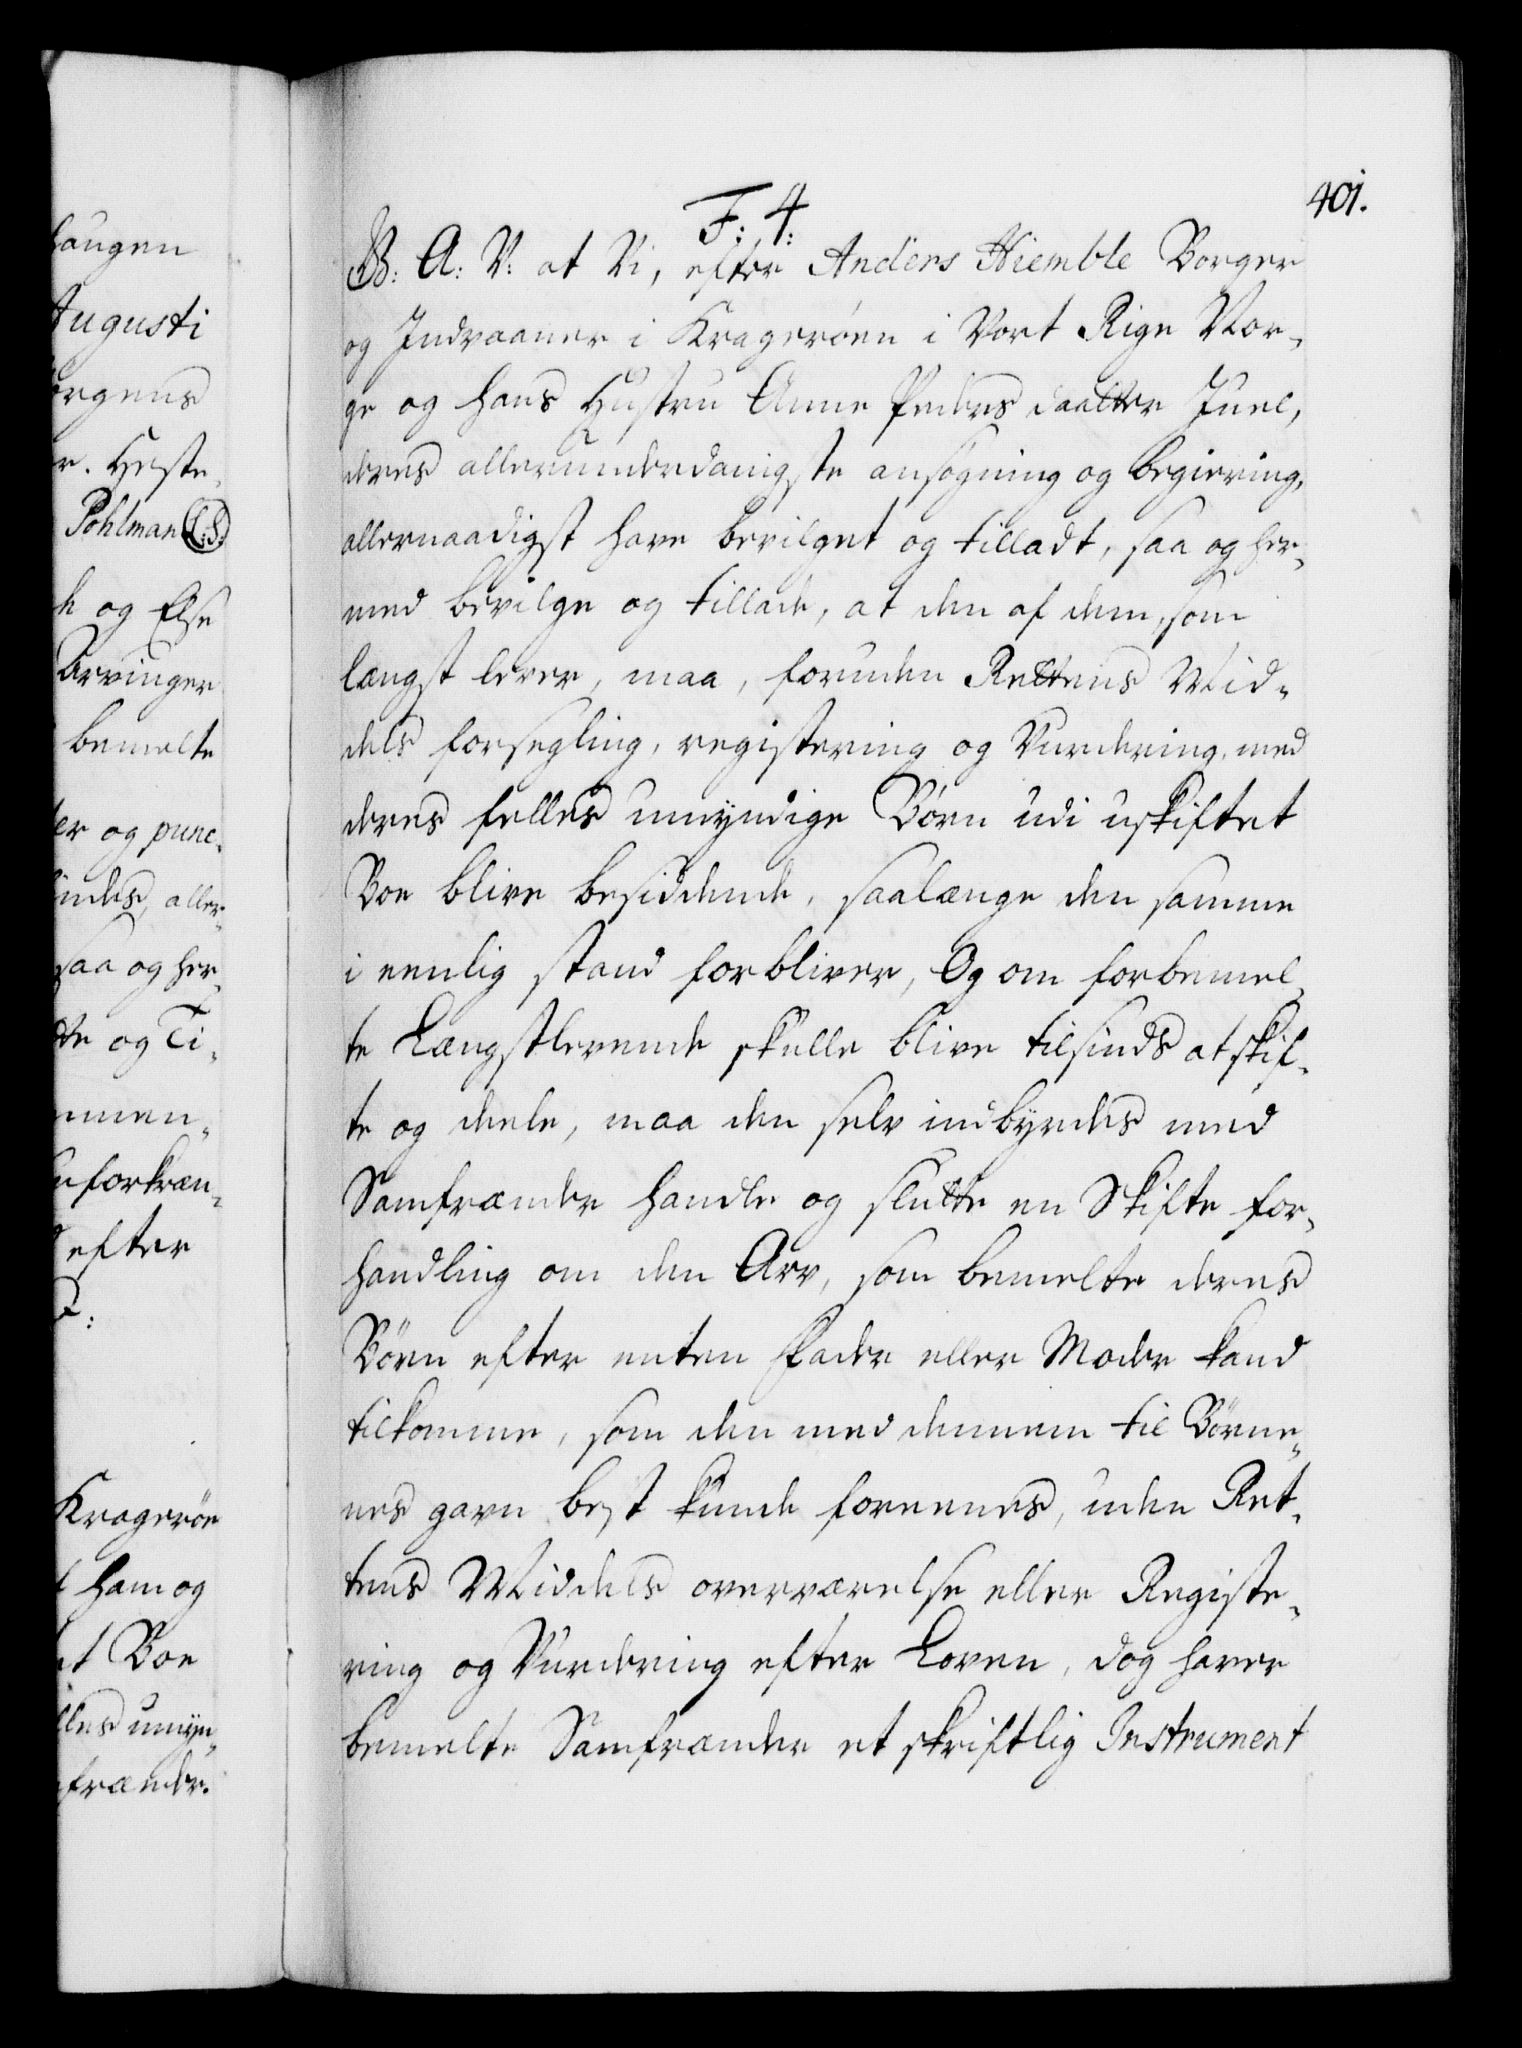 401.
F: 4:
G: A: V: at Vi, efter Anders Hiemble Borger
og Indvaaner i Kragerøen i Vort Rige Nor-
ge og hans Hustru Anne Peders daatter Juel,
deres allerunderdanigste ansøgning og begiering,
allernaadigst have bevilget og tilladt, saa og her-
med bevilge og tillade, at den af dem, som
længst lever, maa, foruden Rettens Mid-
dels forsegling, registering og Vurdering, med
deres felles umyndige Børn udi uskiftet
Boe blive besiddende, saalænge den samme
i eenlig stand forbliver, Og om forbemel-
te Længstlevende skulle blive tilsinds at skif-
te og deele, maa den selv indbyrdes med
Samfrænder handle og slutte en Skifte for-
handling om den Arv, som bemelte deres
Børn efter enten Fader eller Moder kand
tilkomme, som den med dennem til Børne-
nes gavn best kunde foreenes, uden Ret-
tens Middels overværelse eller Registe-
ring og Vurdering efter Loven, dog haver
bemelte Samfrænder et skriftlig Instrument
haugen
Augusti
ørgens
r. Heste-
Pohlman L:S:
h og Else
Arvinger
bemelte
er og punc-
indes, aller-
saa og her-
tte og Ti-
mmen-
uforkræn-
efter
Kragerøe
ham og
et Boe
lles umyn-
frænder.